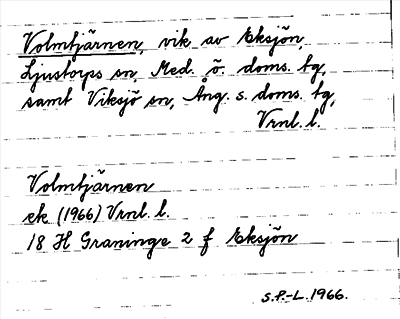 Volmtjärnen, vik av Eksjön,
Ljustorps sn, Med. ö. doms. tg,
samt Viksjö sn, Ång. s. doms. tg,
Vrnl. l.
Volmtjärnen
ek (1966) Vrnl. l.
18 H Graninge 2 f Eksjön
S.P.-L. 1966.